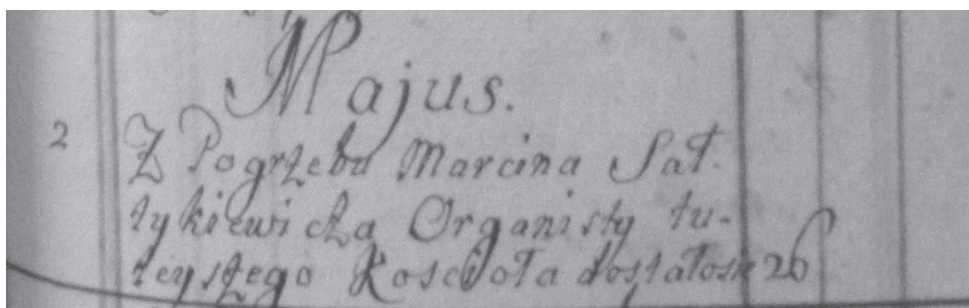 Majus.
2 Z Pogrzebu Marcina Sał-
tykiewicza Organisty tu-
teyszego Koscioła dostałosie 26